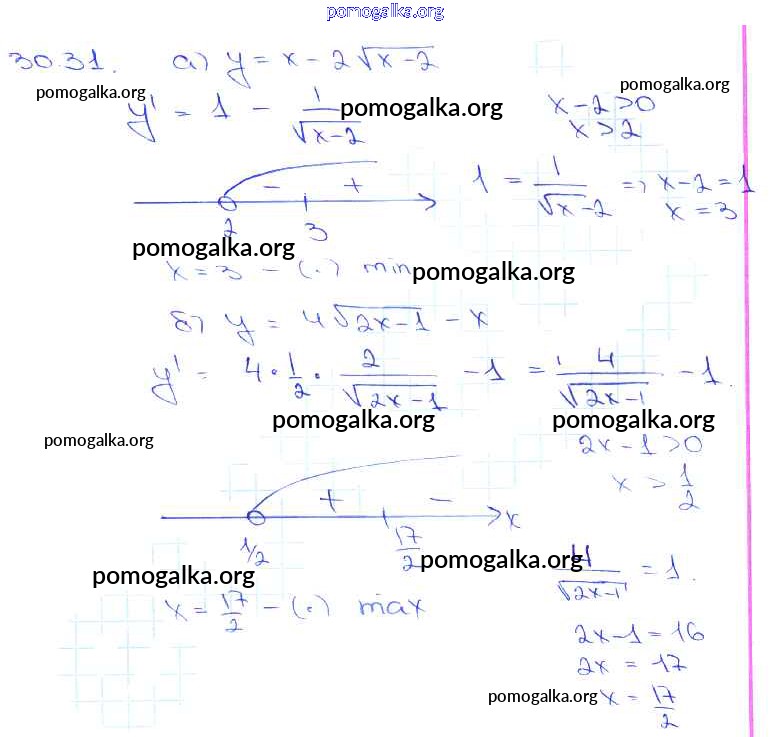 pomogalka.org
30.31. а) y = x - 2√(x-2)
pomogalka.org pomogalka.org
y' = 1 - 1/√(x-2) pomogalka.org x-2>0
x>2
- + 1 = 1/√x-2 => x-2=1
2 3 x=3
pomogalka.org
x=3 - (.) min pomogalka.org
б) y = 4√(2x-1) - x
y' = 4·1/2·2/√(2x-1) - 1 = 4/√(2x-1) - 1.
pomogalka.org pomogalka.org
pomogalka.org 2x-1>0
x > 1/2
+ - x
1/2 17/2 pomogalka.org
pomogalka.org 4/√(2x-1) = 1.
x = 17/2 - (.) max
2x-1=16
2x = 17
pomogalka.org x = 17/2